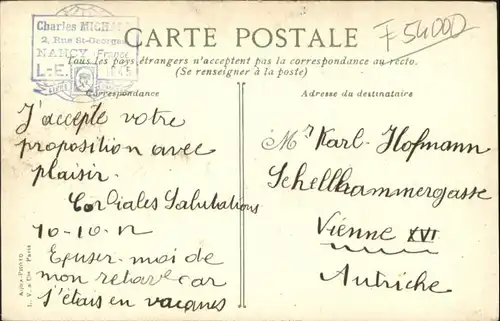 Charles MICHEL
2, Rue St-Georges
NANCY (France)
L.-E.
CARTE POSTALE
F 54000
Tous les pays étrangers n'acceptent pas la correspondance au recto.
(Se renseigner à la poste)
Correspondance
Adresse du destinataire
J'accepte votre
proposition avec
plaisir.
Cordiales Salutations
10-10-12
Exuser-moi de
mon retard car
j'étais en vacanes
Mr Karl Hofmann
Schellhammergasse
Vienne XVI
Autriche
L. V. & Cie Paris